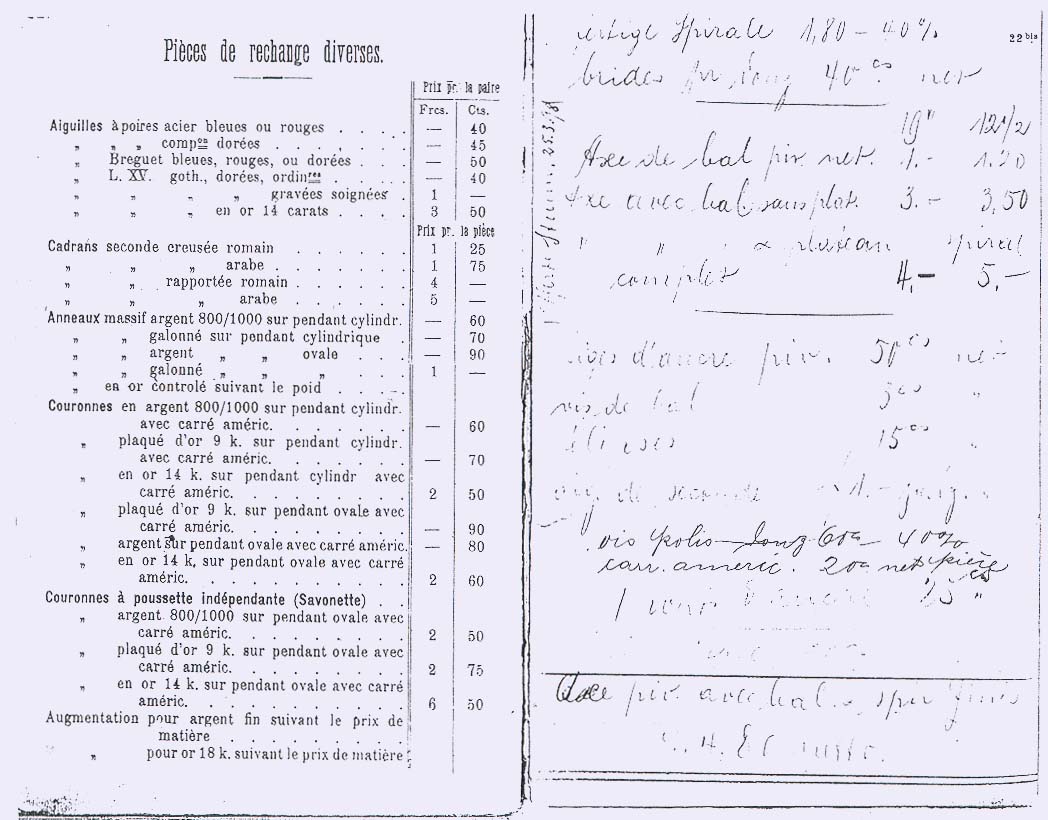 Pièces de rechange diverses.
Prix pr. la paire
Frcs. Cts.
Aiguilles à poires acier bleues ou rouges . . . . — 40
„ „ „ compons dorées . . . . . — 45
„ Breguet bleues, rouges, ou dorées . . . — 50
„ L. XV. goth., dorées, ordinres . . . . . — 40
„ „ „ „ gravées soignées . 1 —
„ „ „ en or 14 carats . . . . 3 50
Prix pr. la pièce
Cadrans seconde creusée romain . . . . . . 1 25
„ „ „ arabe . . . . . . . 1 75
„ „ rapportée romain . . . . . . 4 —
„ „ „ arabe . . . . . . 5 —
Anneaux massif argent 800/1000 sur pendant cylindr. — 60
„ „ galonné sur pendant cylindrique . — 70
„ „ argent „ „ ovale . . . — 90
„ „ galonné „ „ „ . . . 1 —
„ en or controlé suivant le poid . . . .
Couronnes en argent 800/1000 sur pendant cylindr.
avec carré améric. . . . . . . — 60
„ plaqué d'or 9 k. sur pendant cylindr.
avec carré améric. . . . . . . — 70
„ en or 14 k. sur pendant cylindr avec
carré améric. . . . . . . . . 2 50
„ plaqué d'or 9 k. sur pendant ovale avec
carré améric. . . . . . . . . — 90
„ argent sur pendant ovale avec carré améric. — 80
„ en or 14 k, sur pendant ovale avec carré
améric. . . . . . . . . . 2 60
Couronnes à poussette indépendante (Savonette) . .
„ argent 800/1000 sur pendant ovale avec
carré améric. . . . . . . . . 2 50
„ plaqué d'or 9 k. sur pendant ovale avec
carré améric. . . . . . . . . 2 75
„ en or 14 k. sur pendant ovale avec carré
améric. . . . . . . . . . 6 50
Augmentation pour argent fin suivant le prix de
matière . . . . . . . .
„ pour or 18 k. suivant le prix de matière
22 bis
Spirale 1,80 — 40%
brides 40 cs net
19''' 12 1/2
Axe de bal piv. net. 1.- 1.20
Axe avec bal sans plat. 3.- 3,50
„ „ „ & plateau spiral
complet 4,- 5,-
d'ancre piv. 50 cs net
vis de bal 3 cs „
15 cs „
de seconde 1.-
vis polis 60 cs 40%
carr. americ. 20 cs net pièce
25 cs „
Axe piv. avec bal. spir